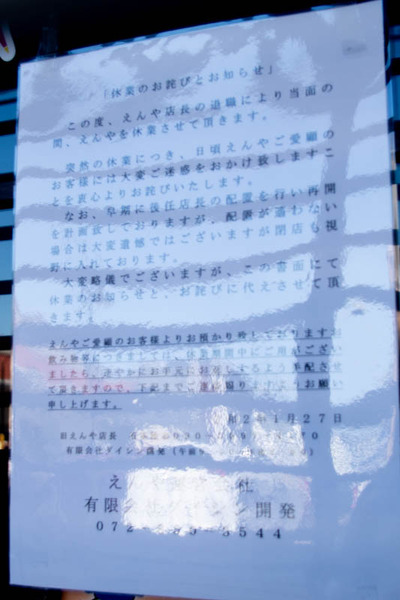 「休業のお詫びとお知らせ」
この度、えんや店長の退職により当面の
間、えんやを休業させて頂きます。
突然の休業につき、日頃えんやご愛顧の
お客様には大変ご迷惑をおかけ致しますこ
とを衷心よりお詫びいたします。
なお、早期に後任店長の配置を行い再開
を計画致しておりますが、配置が適わない
場合は大変遺憾ではございますが閉店も視
野に入れております。
大変略儀でございますが、この書面にて
休業のお知らせと、お詫びに代えさせて頂
きます。
えんやご愛顧のお客様よりお預かり致しております
飲み物等につきましては、休業期間中にご用がござい
ましたら、速やかにお手元にお戻しするよう手配させ
て頂きますので、下記までご連絡賜りますようお願い
申し上げます。
2年1月27日
旧えんや店長
有限会社ダイシン開発（午前9
え
有限会社ダイシン開発
072 5544